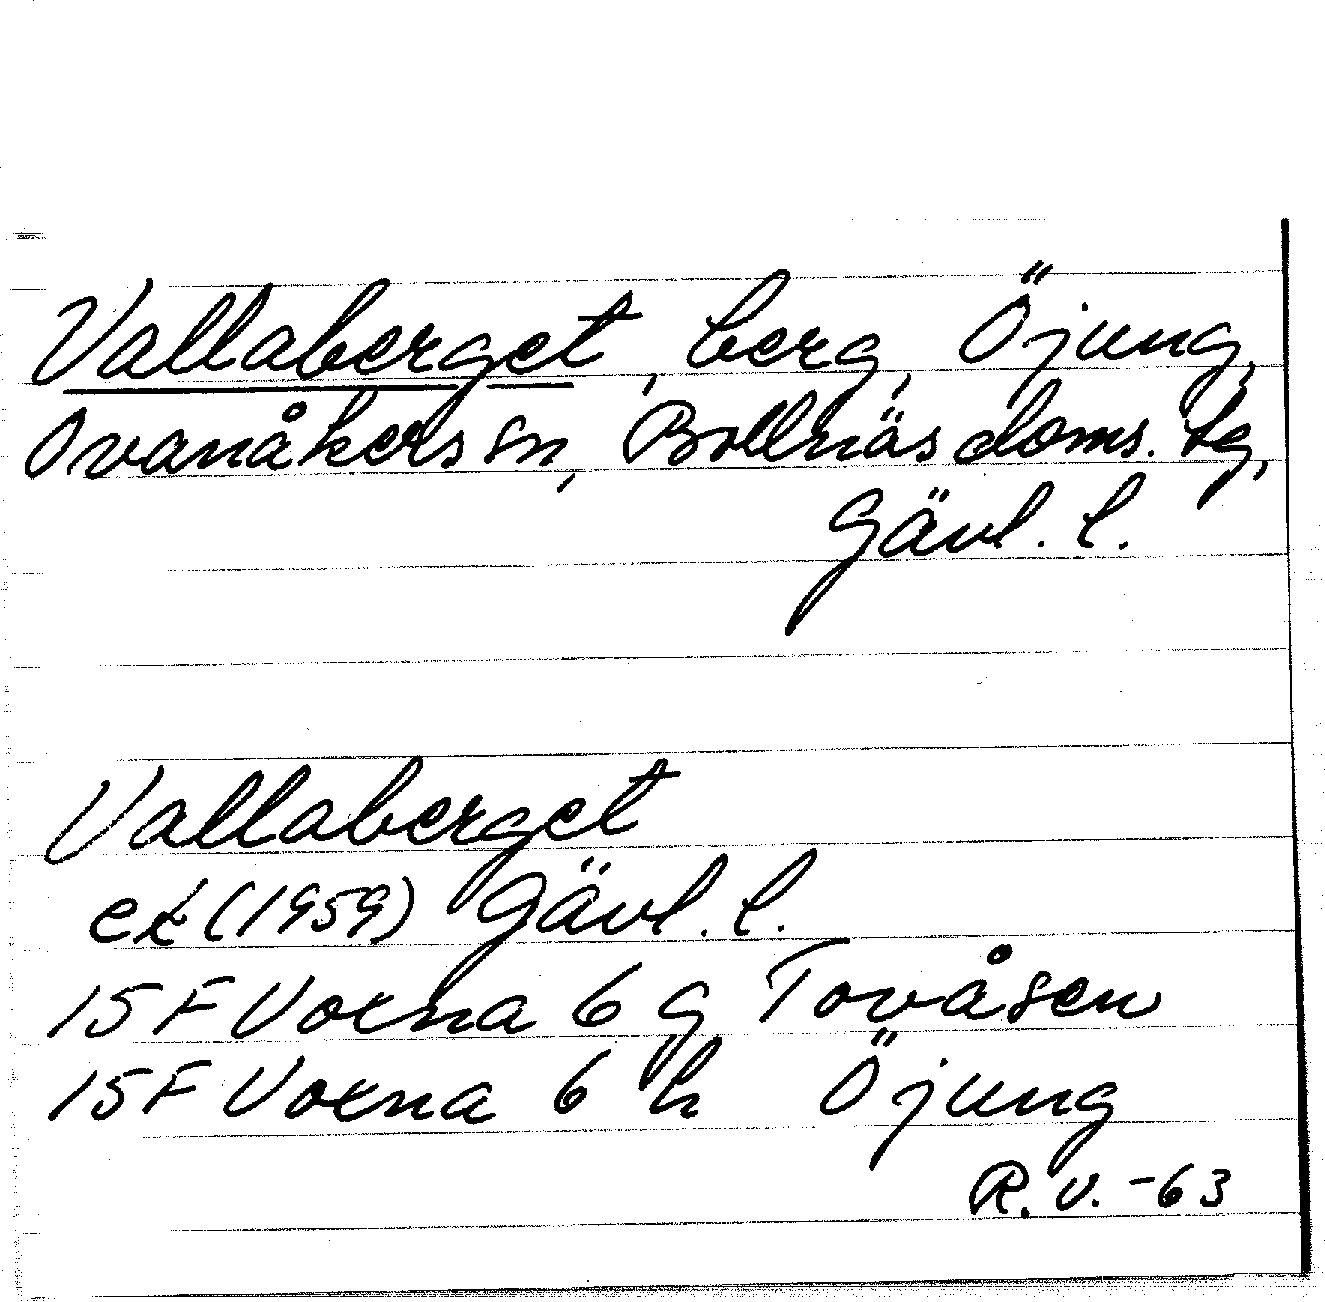 Vallaberget, berg, Öjung,
Ovanåkers sn, Bollnäs doms. tg,
Gävl. l.
Vallaberget
ek (1959) Gävl. l.
15 F Voxna 6 g Tovåsen
15 F Voxna 6 h Öjung
R. V. -63